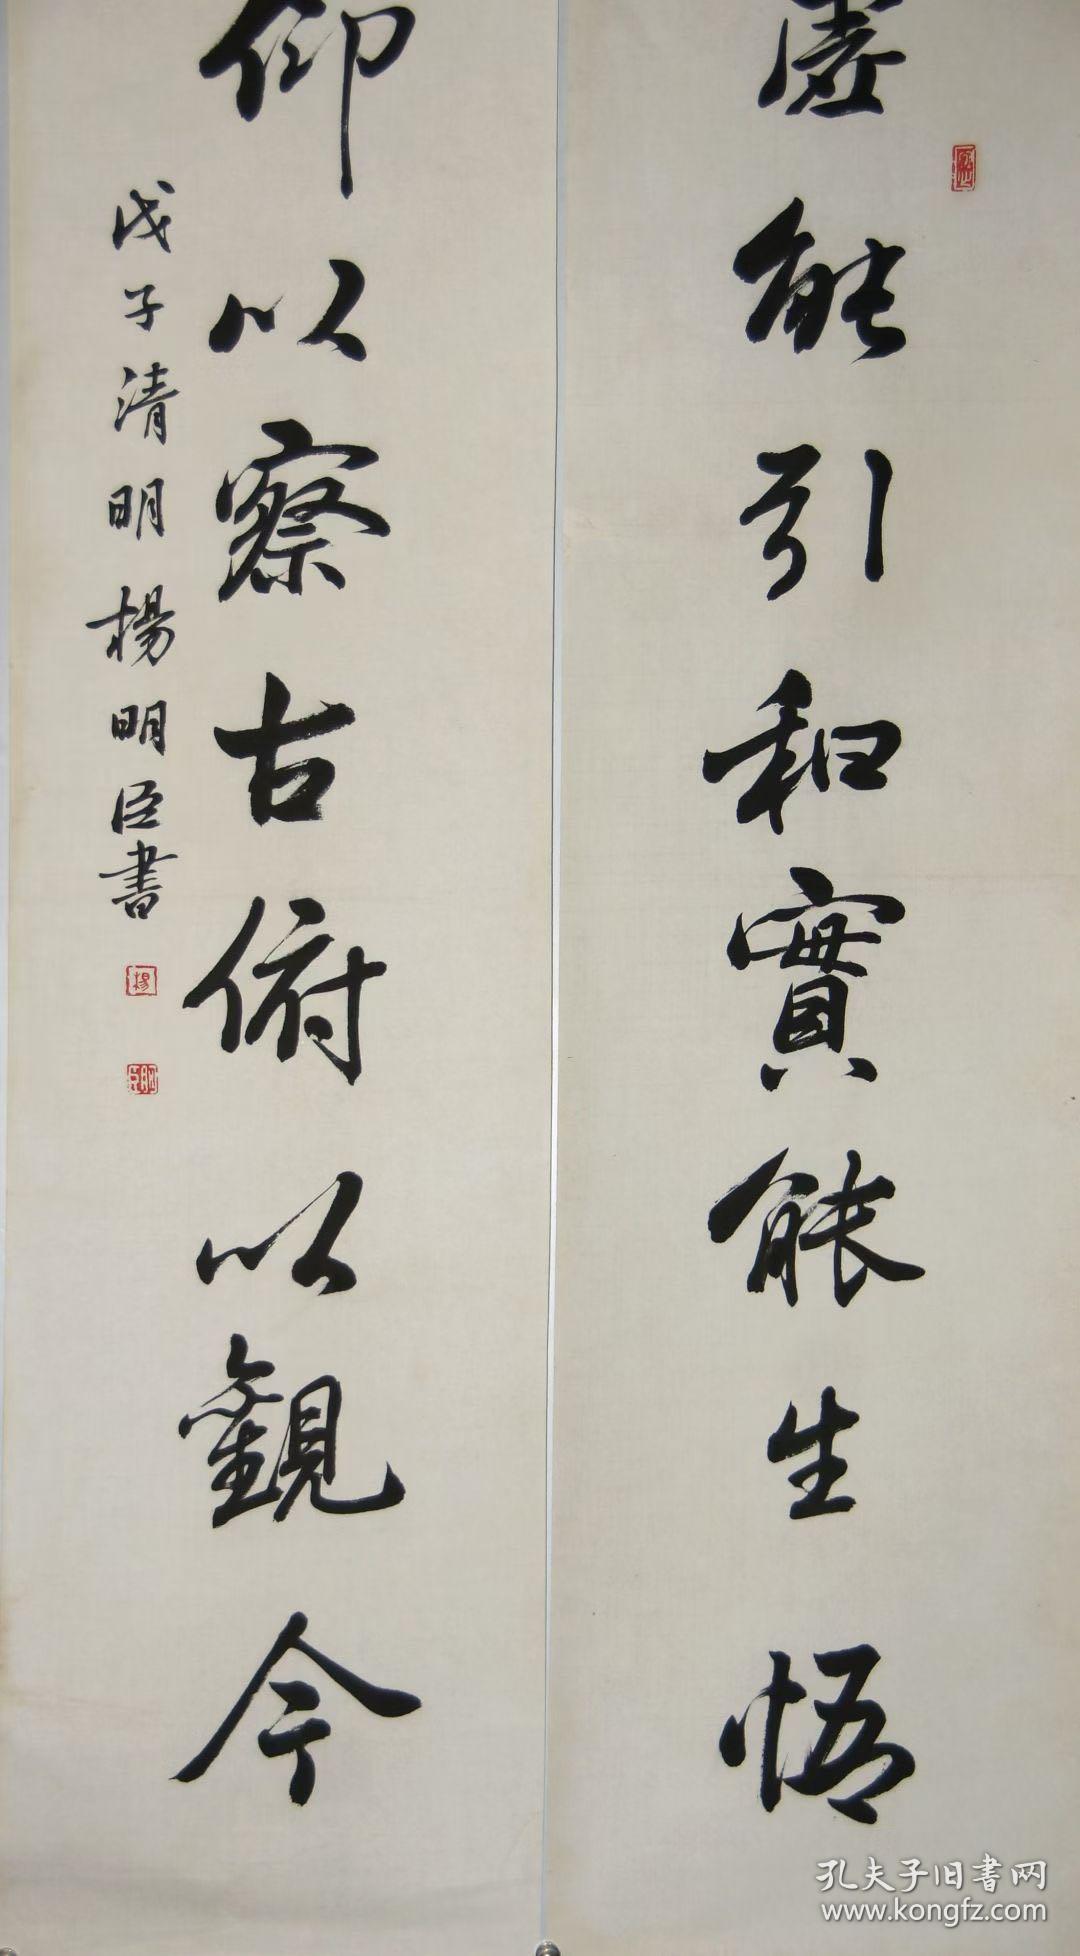 虛能引和實能生悟
仰以察古俯以觀今
戊子清明楊明臣書
楊
孔夫子旧書网
www.kongfz.com